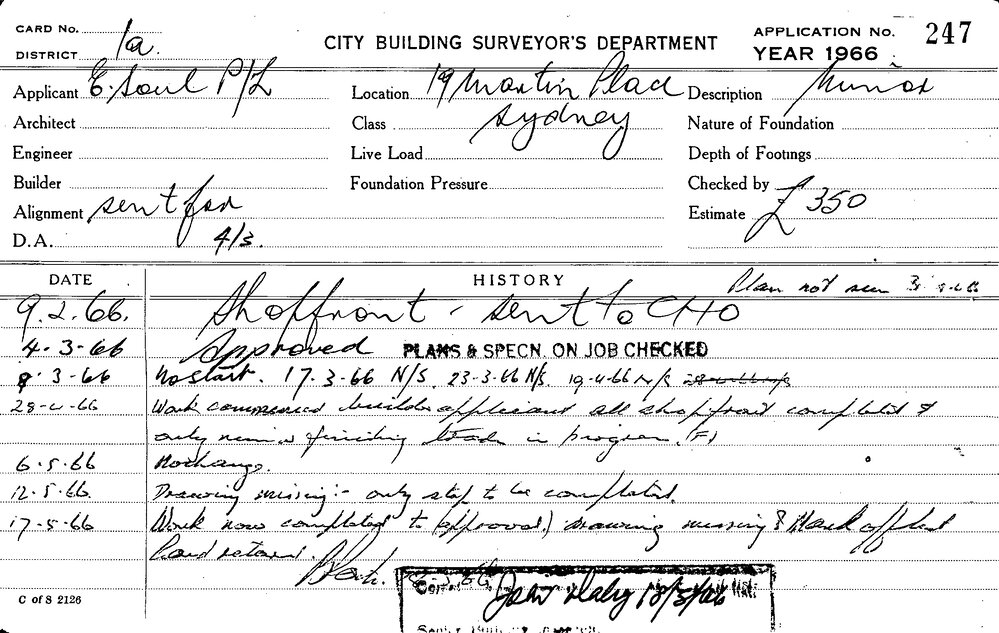 CARD No.
DISTRICT 1a.
CITY BUILDING SURVEYOR'S DEPARTMENT
APPLICATION No. 247
YEAR 1966
Applicant E. Soul P/L
Location 19 Martin Place
Description Minor
Architect
Class Sydney
Nature of Foundation
Engineer
Live Load
Depth of Footings
Builder
Foundation Pressure
Checked by
Alignment sent for
Estimate £ 350
D.A. 4/3.
DATE
HISTORY
Plan not seen
9.2.66. Shopfront - sent to CHO
4-3-66 Approved PLANS & SPECN. ON JOB CHECKED
8-3-66 No start. 17-3-66 N/S. 23-3-66 N/S. 19-4-66 N/S
28-4-66 Work commenced builder applicant all shop front completed &
only minor finishing trades in progress. (F)
6.5.66 No change.
12.5.66. Drawing missing:- only step to be completed.
17-5-66 Work now completed to (approval.) drawing missing
Card returned.
John Daly 18/5/66
C of S 2126